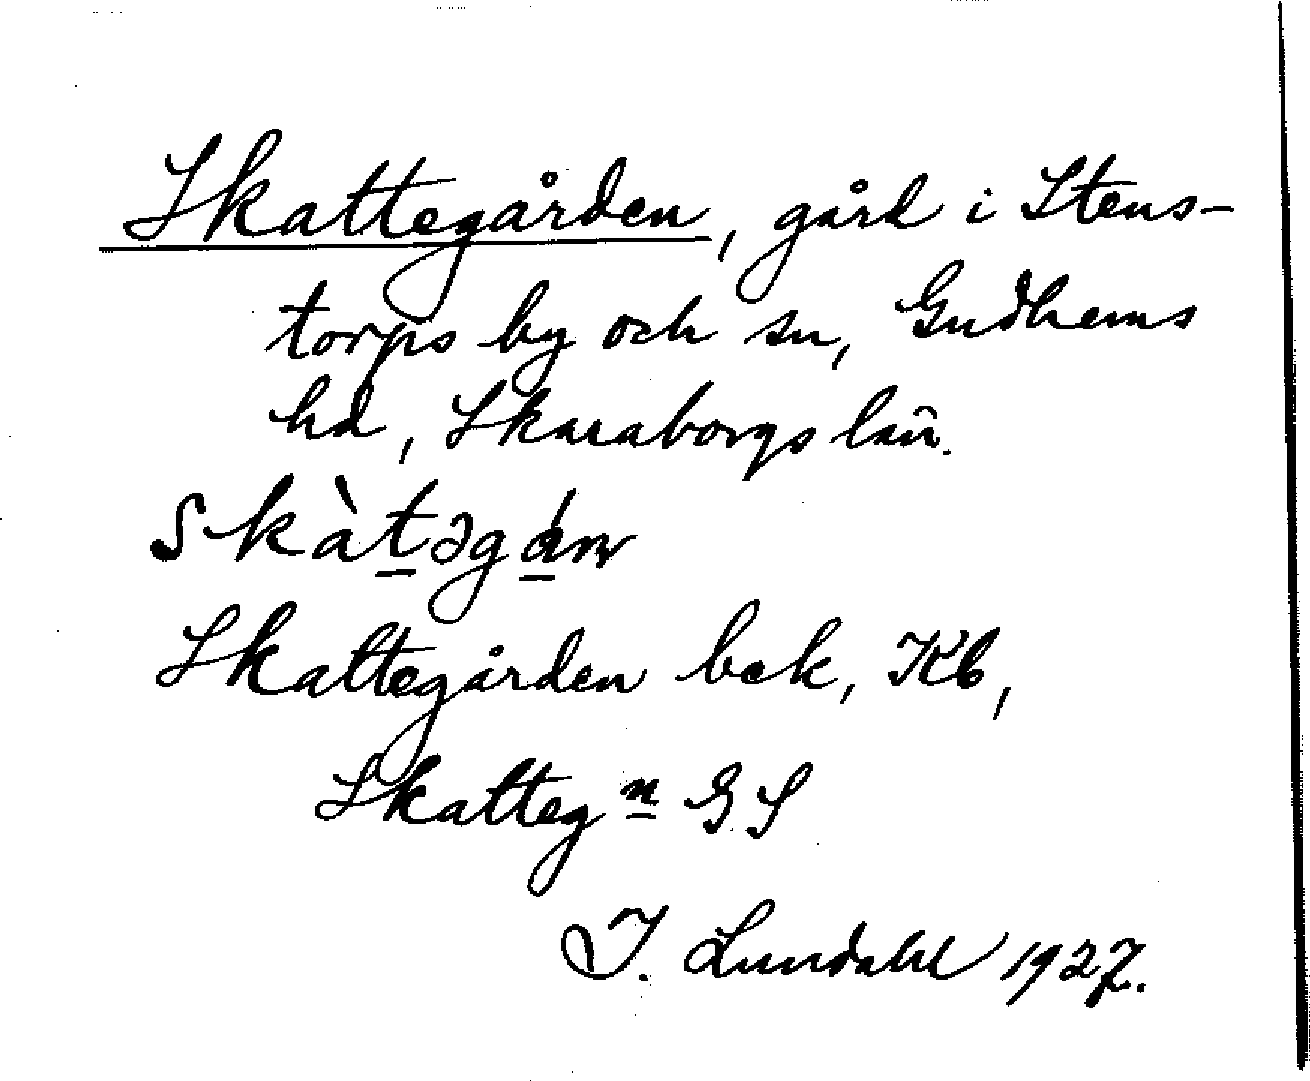 Skattegården, gård i Stens-
torps by och sn, Gudhems
hd, Skaraborgs län.
skàt̲əgá̲ṇ
Skattegården bek, Kb,
Skatteg n̲ GS
I. Lundahl 1927.